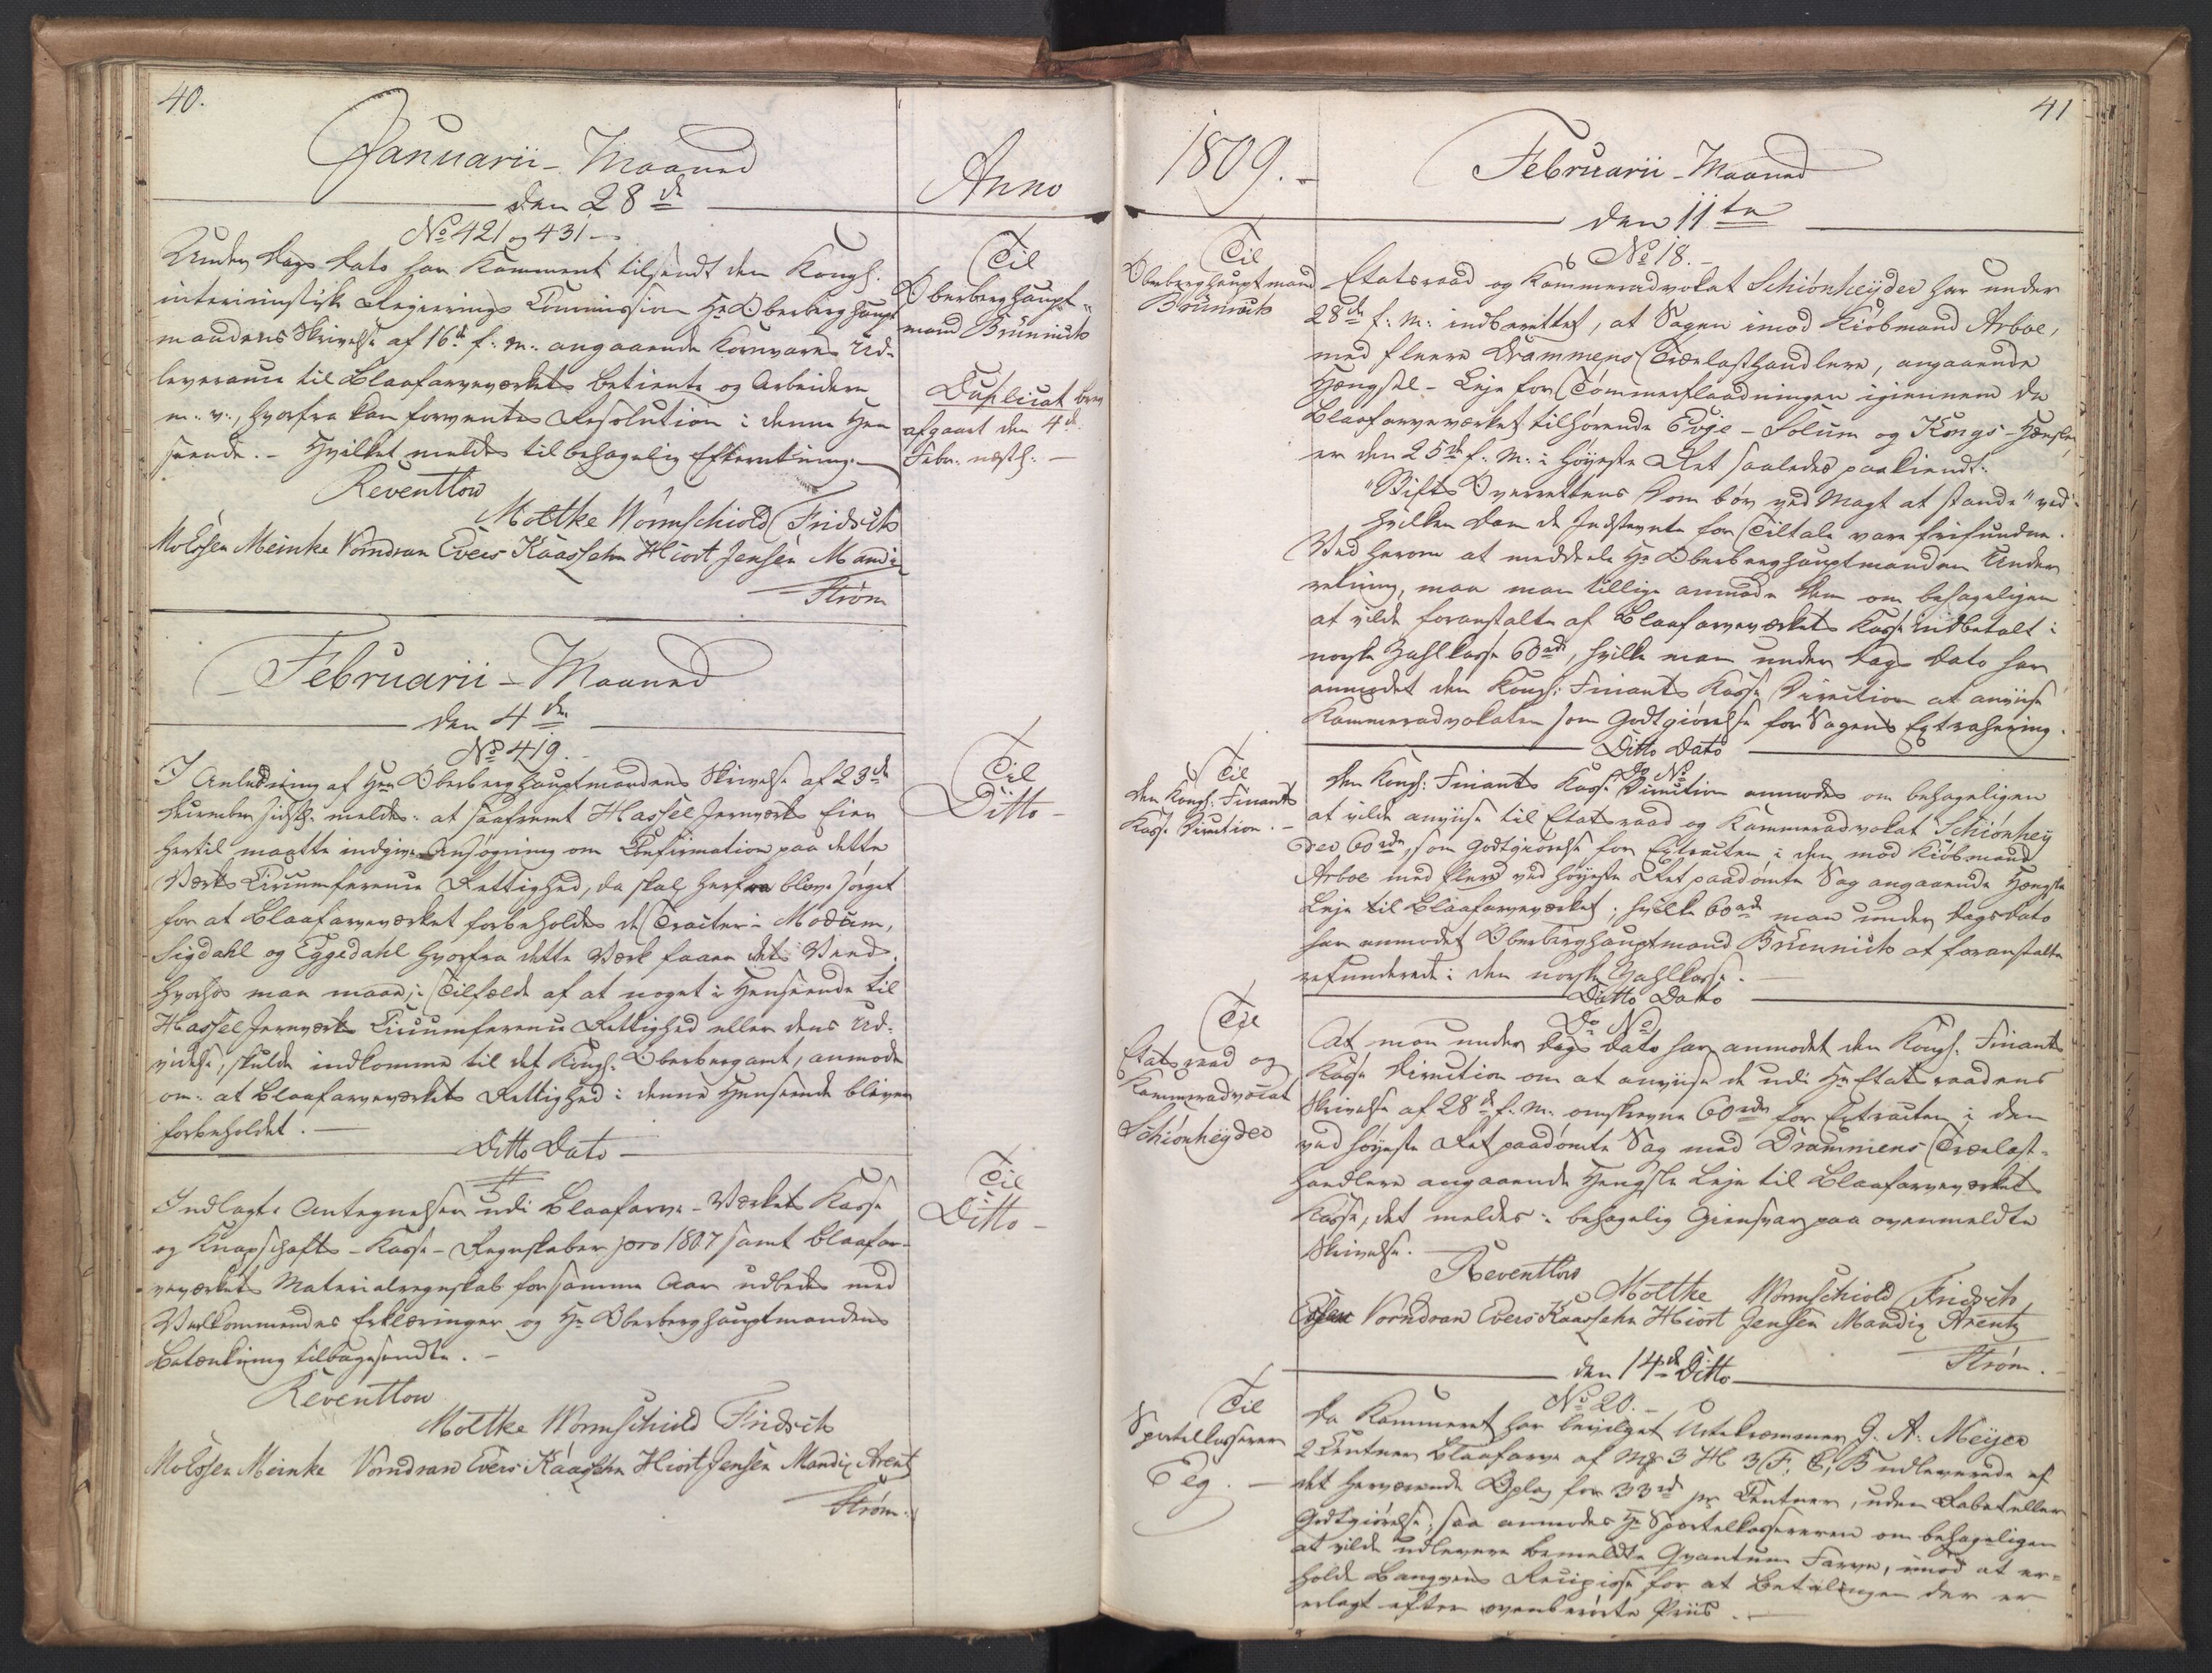 40.
Januarii - Maaned
Anno
den 28de
No 421 og 431 -
Under Dags Dato har Kammeret tilsendt den Kongl.
interimistiske Regierings Commission Hr Oberberghaupt
mandens Skrivelse af 16de f. M. angaaende Kornvarers Ud-
leverance til Blaafarveværkets Betiente og Arbeidere
m. v., hvorfra kan forventes Resolution i denne Hen
seende. - Hvilket meldes til behagelig Efterretning. -
Reventlow
Moltke Wormschiold Fridsch
Molsen Meinke Vorndran Evers Kaas Lehn Hiort Jensen Mandix
Strøm
Til
Oberberghaupt-
mand Brünnich
Duplicat brev
afgaaet den 4de
Febr. næsth. -
Februarii - Maaned
den 4de
No 419. -
I Anledning af Hr Oberberghauptmandens Skrivelse af 23de
December sidstl. meldes: at saafremt Hassel Jernværks Eier
hertil maatte indgive Ansøgning om Confirmation paa dette
Værks Circumference Rettighed, da skal herfra blive sørget
for at Blaafarveværket forbeholdes de Tracter i Modum,
Sigdahl og Eggedahl hvorfra dette Værk faaer det Ved.
Hvorhos man maae, i Tilfælde af at noget i Henseende til
Hassel Jernværks Circumference Rettighed eller dens Ud-
videlse, skulde indkomme til det Kongl. Oberbergamt, anmode
om: at Blaafarveværkets Rettighed i denne Henseende bliver
forbeholdet. -
Til
Ditto -
Ditto Dato -
Indlagte Antegnelser udi Blaafarve-Værkets Kasse
og Knapschafts-Kasse-Regnskaber pro 1807 samt Blaafar-
veværkets Materialregnskab for samme Aar udbedes med
Vedkommendes Erklæringer og Hr Oberberghauptmandens
Betænkning tilbagesendte. -
Reventlow
Moltke Wormschiold Fridsch
Molsen Meinke Vorndran Evers Kaas Lehn Hiort Jensen Mandix Arentz
Strøm.
Til
Ditto -
41
1809. -
Februarii - Maaned
den 11te
No 18. -
Til
Oberberghauptmand
Brünnich
Etatsraad og Kammeradvokat Schiønheyder har under
28de f. M. indberettet, at Sagen imod Kiøbmand Arboe,
med fleere Drammens Trælasthandlere, angaaende
Hængsel-Leje for Tømmerflaadningen igiennem de
Blaafarveværket tilhørende Evje - Solum og Kongs-Hængsler,
er den 25de f. M. i Høyeste Ret saaledes paakiendt:
"Stifts Overrettens Dom bør ved Magt at stande" ved
hvilken Dom de Indstevnte for Tiltale vare frifundne.
Ved herom at meddele Hr Oberberghauptmanden Under
retning, maa man tillige anmode Dem om behageligen
at vilde foranstalte af Blaafarveværkets Kasse indbetalt i
norske Zahlkasse 60 rd, hvilke man under Dags Dato har
anmodet den Kongl. Finants Kasse Direction at anviise
Kammeradvokaten som Godtgiørelse for Sagens Extrahering.
Ditto Dato
Do No
Til
den Kongl. Finants
Kasse Direction. -
Den Kongl. Finants Kasse Direction anmodes om behageligen
at vilde anviise til Etatsraad og Kammeradvokat Schiønhey
der 60 rd, som Godtgiørelse for Extracten i den mod Kiøbmand
Arboe med flere ved Høyeste Ret paadømte Sag angaaende Hængsle
Leje til Blaafarveværket, hvilke 60 rd man under Dags Dato
har anmodet Oberberghauptmand Brünnich at foranstalte
refunderede i den norske Zahlkasse. -
Ditto Dato
Do No
Til
Etatsraad og
Kammeradvocat
Schiønheyder
At man under Dags Dato har anmodet den Kongl. Finants
Kasse Direction om at anviise de udi Hr Etatsraadens
Skrivelse af 28de f. M. omskrevne 60 rd for Extracten i den
ved Høyeste Ret paadømte Sag med Drammens Trælast-
handlere angaaende Hengsle Leje til Blaafarveværkets
Kasse, det meldes i behagelig Giensvar paa ovenmeldte
Skrivelse. -
Reventlow
Moltke Wormschiold Fridsch
Vorndran Evers Kaas Lehn Hiort Jensen Mandix Arentz
Strøm.
den 14de Ditto
No 20. -
Til
Sportelkasserer
Teg. -
Da Kammeret har bevilget Urtekræmmer J. A. Meyer
2 Centner Blaafarve af 3 H 3 F, C, B udleverede af
det herværende Oplag for 33 rd pr Centner, uden Rabat eller
Godtgiørelse, saa anmodes Hr Sportelkassereren om behageligen
at vilde udlevere bemeldte Qvantum Farve, imod at er-
holde Bangvens Recipisse for at Betalingen der er
erlagt efter ovenberørte Priis. -